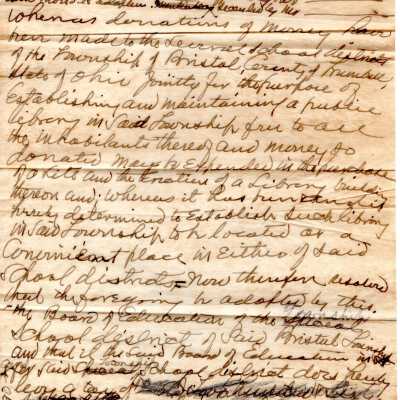 Whereas donations of money have
been made to the several school districts
of the Township of Bristol, County of Trumbull,
State of Ohio Jointly for the purpose of
Establishing and maintaining a public
library in Said Township free to all
the inhabitants thereof and money so
donated may be Expended in the purchase
of a site and the Erection of a Library building
thereon and; whereas it has been and is
hereby determined to Establish such library
in Said Township to be located at a
Convenient place in Either of Said
School districts = Now therefore resolved
that the foregoing be adopted by this
the Board of Education of the
School district of Said Bristol Township
and that the Said Board of Education
of Said School district does hereby
levy a tax of